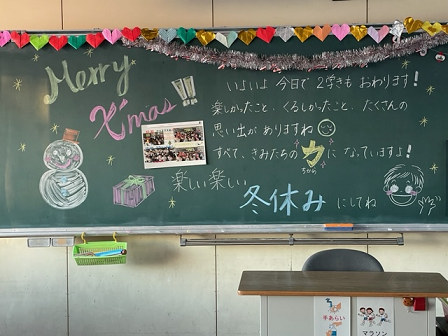 Merry
X'mas!!
いよいよ 今日で 2学きも おわります！
楽しかったこと、くるしかったこと、たくさんの
思い出が ありますね
すべて、きみたちの 力 に なっていますよ！
ちから
楽しい楽しい
冬休み にしてね
手あらい
マラソン